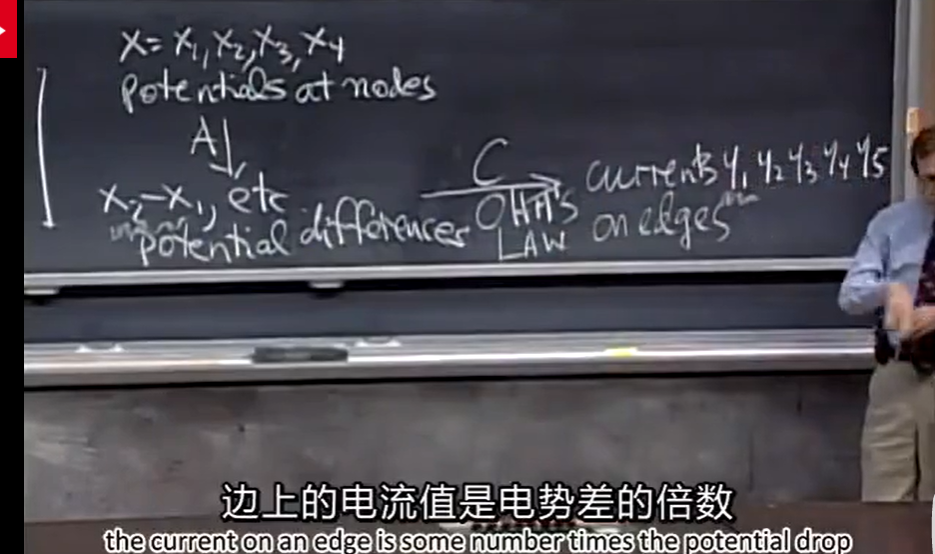 x = x₁, x₂, x₃, x₄
potentials at nodes
A
x₂-x₁, etc
potential differences
C
OHM'S
LAW
currents y₁ y₂ y₃ y₄ y₅
on edges
边上的电流值是电势差的倍数
the current on an edge is some number times the potential drop